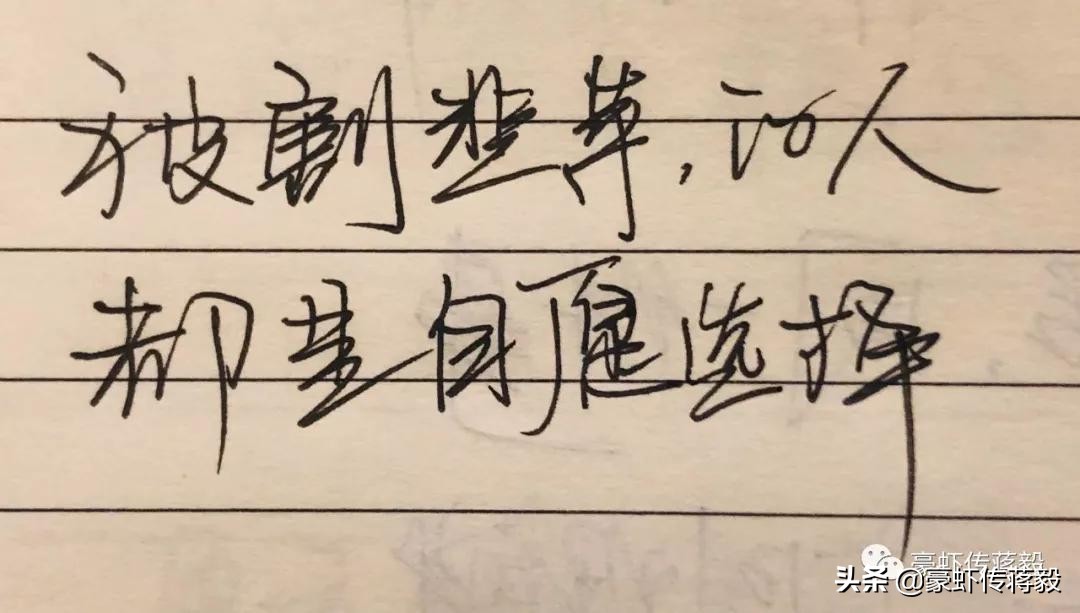 被割韭菜,人
都是自愿选择
豪虾传蒋毅
头条 @豪虾传蒋毅